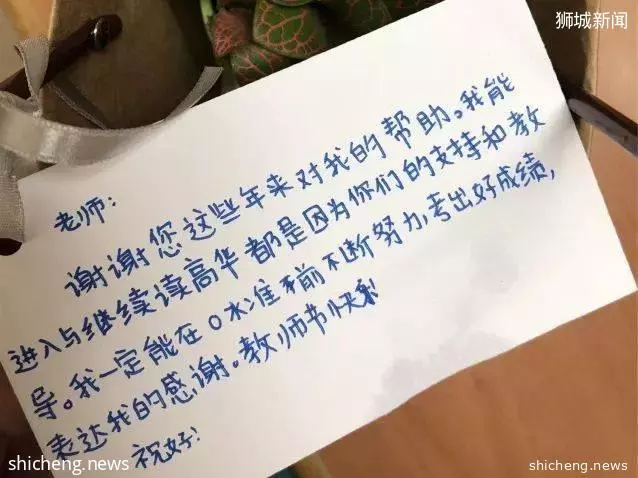 狮城新闻
老师：
谢谢您这些年来对我的帮助。我能
进入与继续读高华都是因为你们的支持和教
导。我一定能在O水准前不断努力，考出好成绩，
表达我的感谢。教师节快乐
祝好！
shicheng.news
shicheng.news